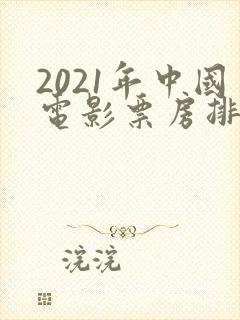 2021年中國
電影票房排
浣浣